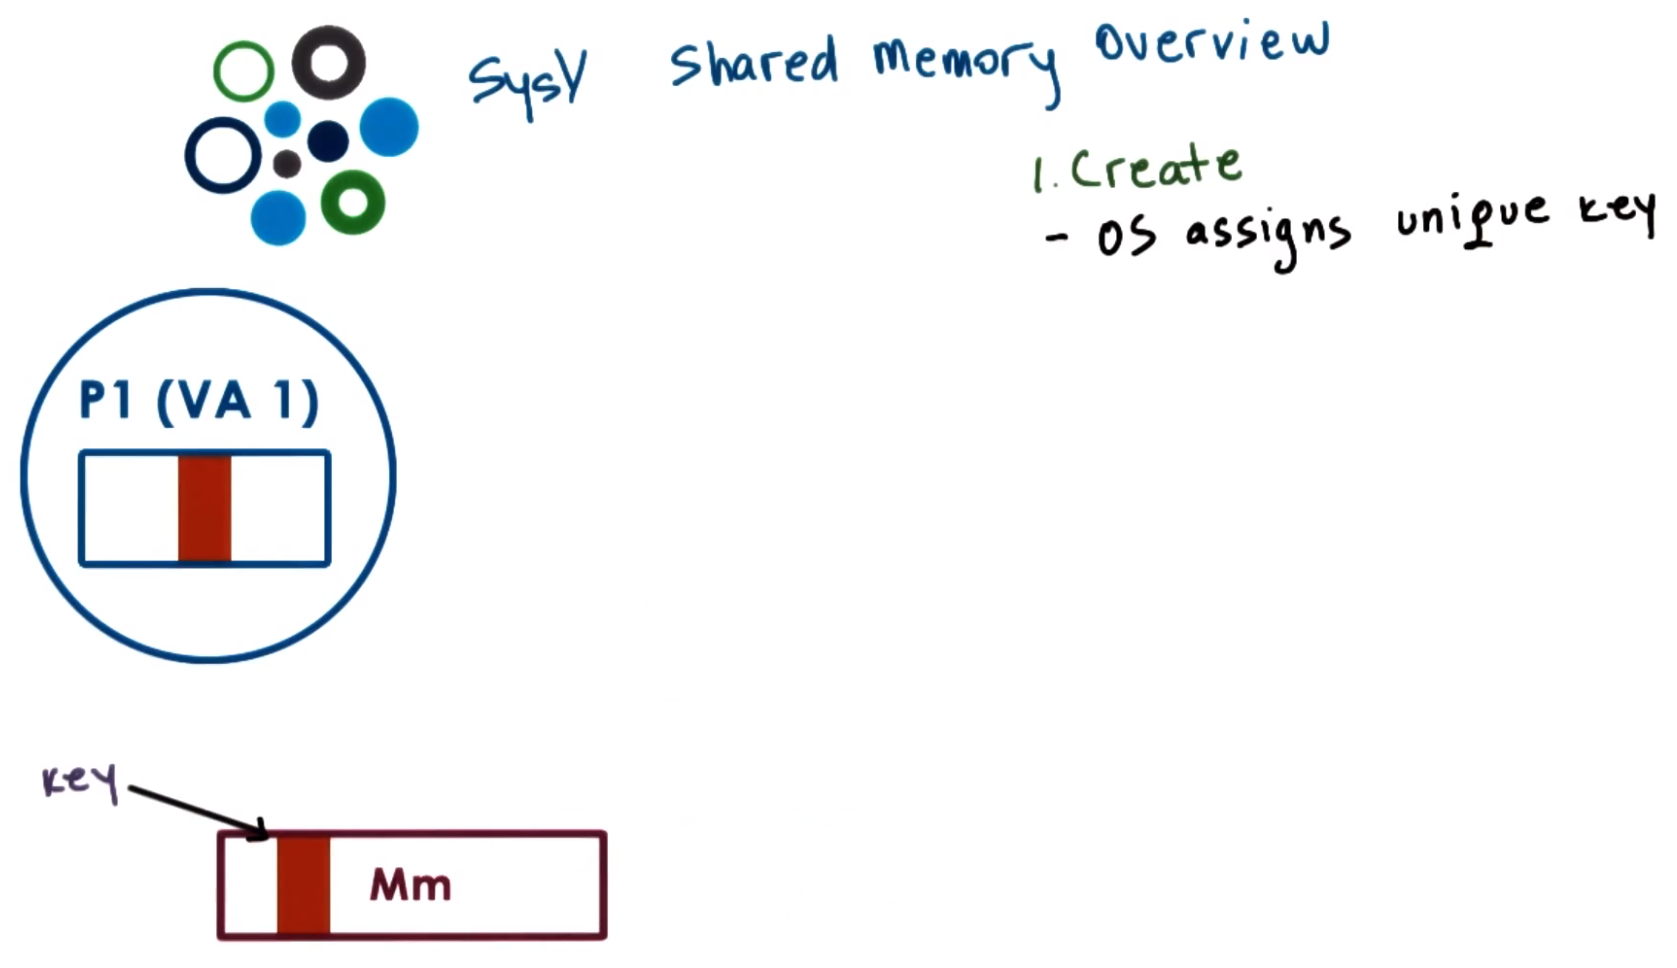 SysV shared memory overview
1. Create
- OS assigns unique key
P1 (VA 1)
key
Mm